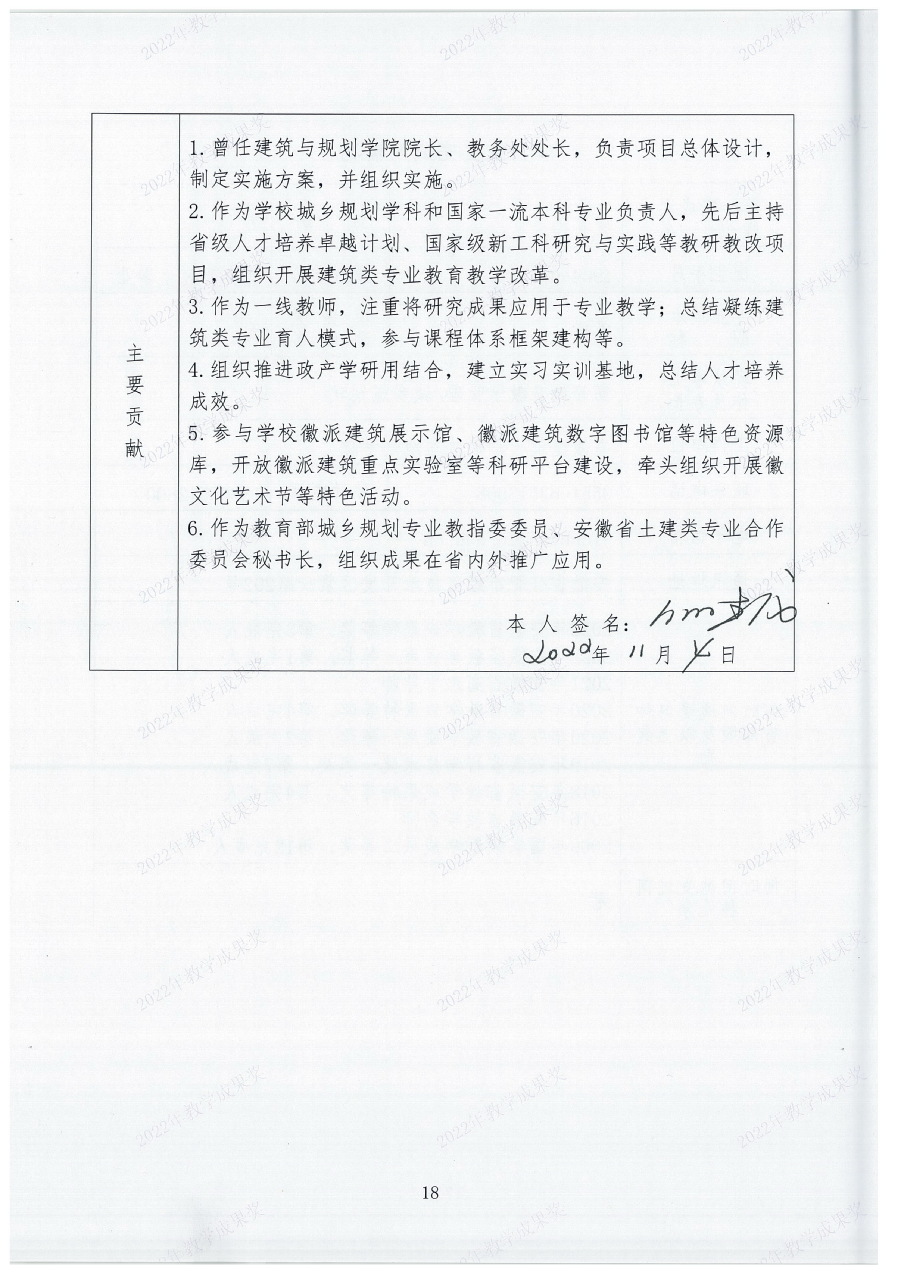 1.曾任建筑与规划学院院长、教务处处长，负责项目总体设计，
制定实施方案，并组织实施。
2.作为学校城乡规划学科和国家一流本科专业负责人，先后主持
省级人才培养卓越计划、国家级新工科研究与实践等教研教改项
目，组织开展建筑类专业教育教学改革。
3.作为一线教师，注重将研究成果应用于专业教学；总结凝练建
筑类专业育人模式，参与课程体系框架建构等。
主要贡献
4.组织推进政产学研用结合，建立实习实训基地，总结人才培养
成效。
5.参与学校徽派建筑展示馆、徽派建筑数字图书馆等特色资源
库，开放徽派建筑重点实验室等科研平台建设，牵头组织开展徽
文化艺术节等特色活动。
6.作为教育部城乡规划专业教指委委员、安徽省土建类专业合作
委员会秘书长，组织成果在省内外推广应用。
本人签名：
2022年 11月 4日
18
2022年教学成果奖